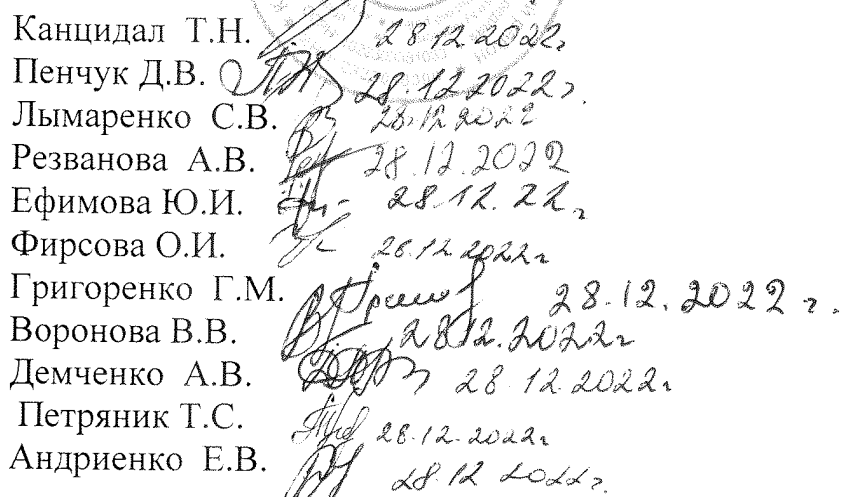 Канцидал Т.Н. 28.12.2022г
Пенчук Д.В. 28.12.2022г.
Лымаренко С.В. 28.12.2022
Резванова А.В. 28.12.2022
Ефимова Ю.И. 28.12.22г
Фирсова О.И. 28.12.2022г
Григоренко Г.М. 28.12.2022 г.
Воронова В.В. 28.12.2022г
Демченко А.В. 28.12.2022г
Петряник Т.С. 28.12.2022г
Андриенко Е.В. 28.12.2022г.